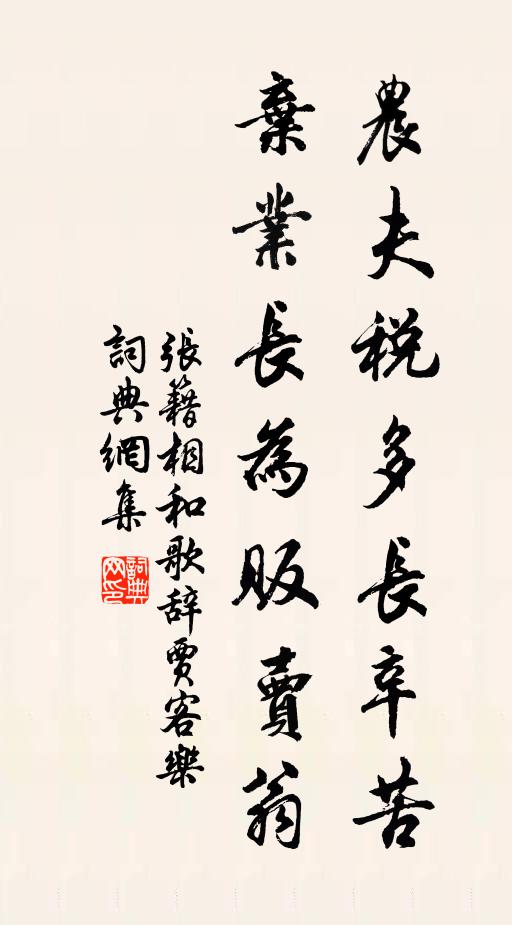 農夫税多長辛苦
棄業長為販賣翁
張籍相和歌辞賈客樂
詞典網集
詞典網印